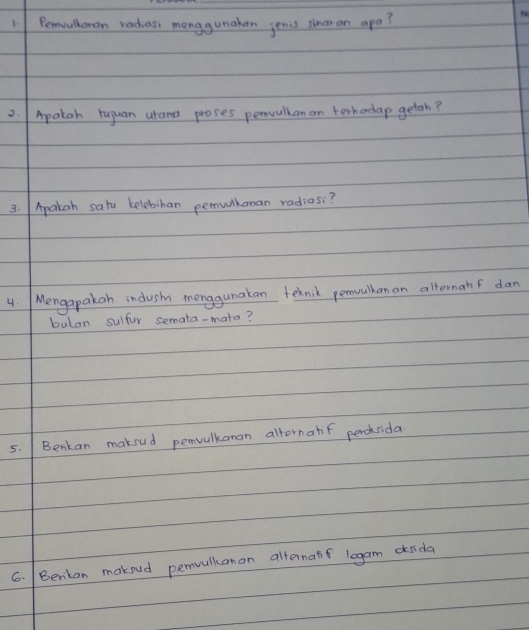 1. Pemvulkanan radiasi menggunakan jenis sinaran apa?
2. Apakah tujuan utama proses pemvulkanan terhadap getah?
3. Apakah satu kelebihan pemvulkanan radiasi?
4. Mengapakah industri menggunakan teknik pemvulkanan alternatif dan
bukan sulfur semata-mata?
5. Berikan maksud pemvulkanan alternatif peroksida.
6. Berikan maksud pemvulkanan alternatif logam oksida